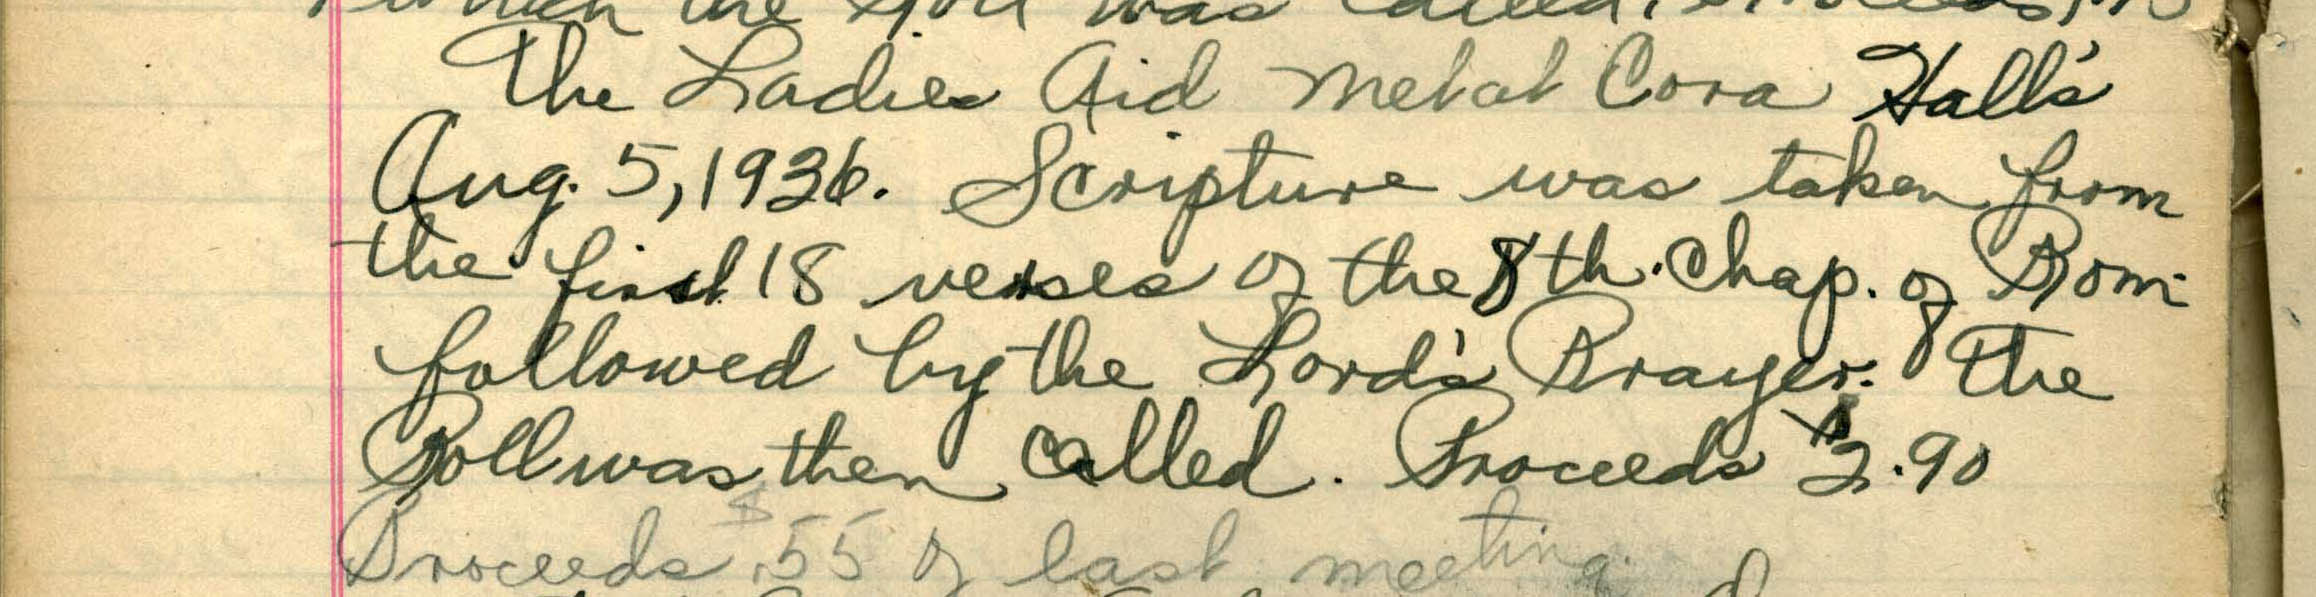 which the roll was called. Proceeds
The Ladies Aid met at Cora Hall's
Aug. 5, 1936. Scripture was taken from
the first 18 verses of the 8th. Chap. of Rom.
followed by the Lord's Prayer. The
Roll was then called. Proceeds $2.90
Proceeds $.55 of last meeting.